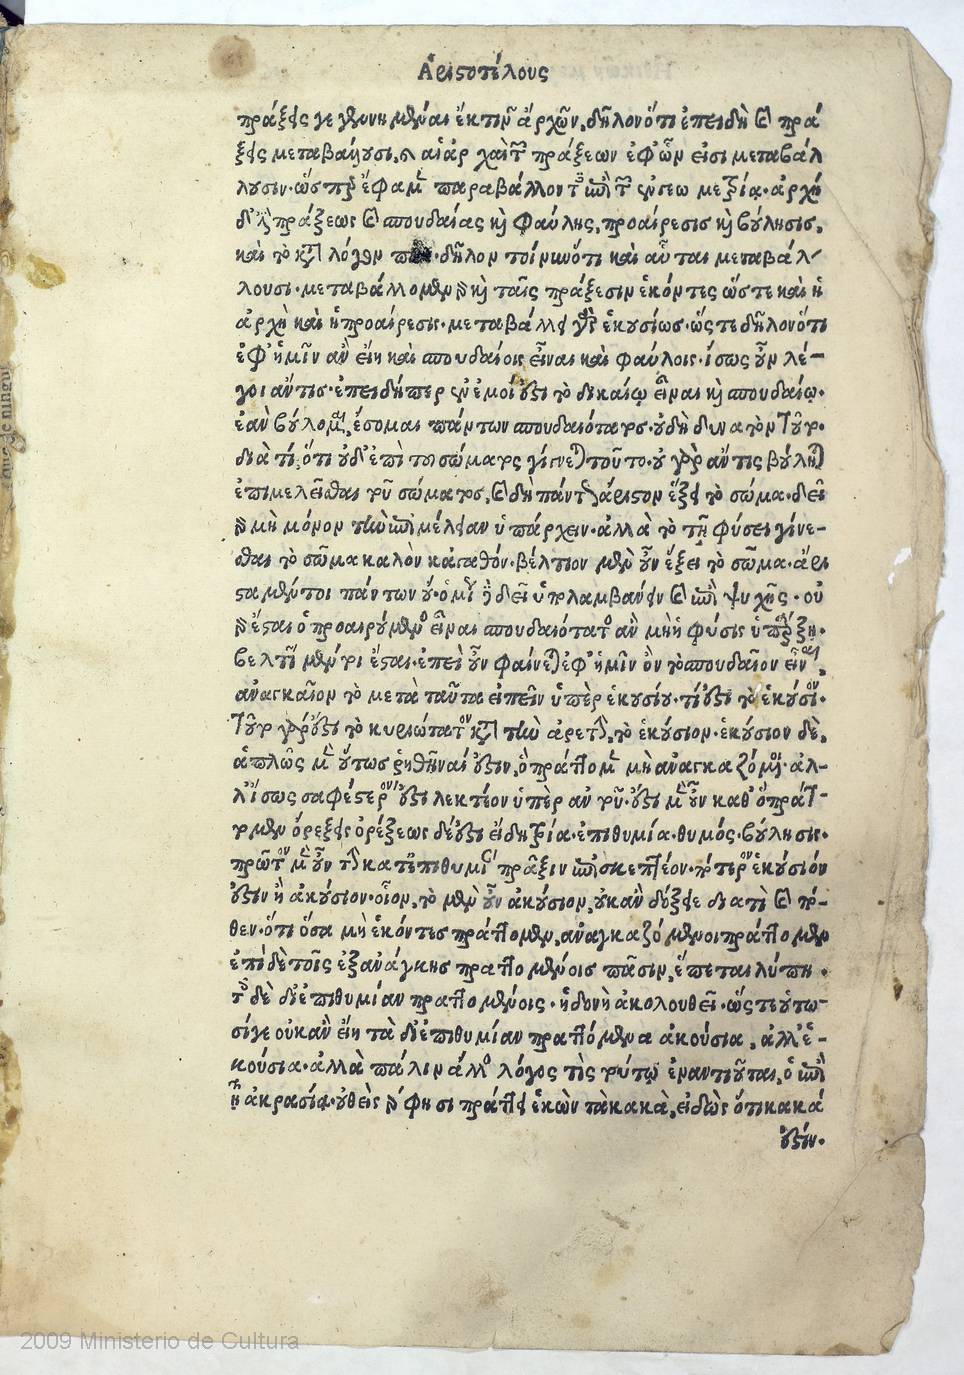 Ἀριστοτέλους
πράξεις γε γινόμεναι ἔκ τινων ἀρχῶν, δῆλον ὅτι ἐπειδὴ αἱ πρά
ξεις μεταβάλλουσι, καὶ αἱ ἀρχαὶ τῶν πράξεων ἐφ' ὧν εἰσι μεταβάλ
λουσιν· ὥσπερ ἔφαμεν παραβάλλοντες ἐπὶ τῶν ἐν γεωμετρίᾳ· ἀρχὴ
δ' ἐστὶ πράξεως καὶ σπουδαίας καὶ φαύλης, προαίρεσις καὶ βούλησις,
καὶ τὸ κατὰ λόγον πᾶν· δῆλον τοίνυν ὅτι καὶ αὗται μεταβάλ
λουσι· μεταβάλλομεν δὲ καὶ ταῖς πράξεσιν ἑκόντες ὥστε καὶ ἡ
ἀρχὴ καὶ ἡ προαίρεσις· μεταβάλλει ἑκουσίως· ὥστε δῆλον ὅτι
ἐφ' ἡμῖν ἂν εἴη καὶ σπουδαίοις εἶναι καὶ φαύλοις· ἴσως οὖν λέ-
γοι ἄν τις· ἐπειδήπερ ἐν ἐμοί ἐστι τὸ δικαίῳ εἶναι καὶ σπουδαίῳ·
ἐὰν βούλομαι, ἔσομαι πάντων σπουδαιότατος· οὐ δὴ δυνατὸν τοῦτο·
διὰ τί, ὅτι οὐδ' ἐπὶ τοῦ σώματος γίνεται τοῦτο· οὐ γὰρ ἄν τις βούληται
ἐπιμελεῖσθαι τοῦ σώματος, καὶ δὴ πάντων ἄριστον ἕξει τὸ σῶμα· δεῖ
δὲ μὴ μόνον τὴν ἐπιμέλειαν ὑπάρχειν· ἀλλὰ τὸ τῇ φύσει γίνε-
σθαι τὸ σῶμα καλὸν κἀγαθόν· βέλτιον μὲν οὖν ἕξει τὸ σῶμα· ἄρι
στα μέντοι πάντων οὔ· ὁμοίως δὲ δεῖ ὑπολαμβάνειν καὶ ἐπὶ ψυχῆς· οὐ
δὲ ἔσται ὁ προαιρούμενος εἶναι σπουδαιότατος ἂν μὴ ἡ φύσις ὑπάρξῃ·
βελτίων μέντοι ἔσται· ἐπεὶ οὖν φαίνεται ἐφ' ἡμῖν ὂν τὸ σπουδαῖον εἶναι,
ἀναγκαῖον τὸ μετὰ ταῦτα εἰπεῖν ὑπὲρ ἑκουσίου· τί ἐστι τὸ ἑκούσιον·
τοῦτο γάρ ἐστι τὸ κυριώτατον κατὰ τὴν ἀρετήν, τὸ ἑκούσιον· ἑκούσιον δὲ,
ἁπλῶς μὲν οὕτως ῥηθῆναί ἐστιν, ὃ πράττομεν μὴ ἀναγκαζόμενοι· ἀλ-
λ' ἴσως σαφέστερον ἐστι λεκτέον ὑπὲρ αὐτοῦ· ἔστι μὲν οὖν καθ' ὃ πράτ-
τομεν ὄρεξις ὀρέξεως δέ ἐστι εἴδη τρία· ἐπιθυμία· θυμός· βούλησις·
πρῶτον μὲν οὖν τὴν κατ' ἐπιθυμίαν πρᾶξιν ἐπισκεπτέον· πότερον ἑκούσιόν
ἐστιν ἢ ἀκούσιον· οἷον, τὸ μὲν οὖν ἀκούσιον, οὐκ ἂν δόξειε διὰ τί καὶ πό-
θεν· ὅτι ὅσα μὴ ἑκόντες πράττομεν, ἀναγκαζόμενοι πράττομεν
ἐπὶ δὲ τοῖς ἐξ ἀνάγκης πραττομένοις πᾶσιν, ἕπεται λύπη·
τοῖς δὲ δι' ἐπιθυμίαν πραττομένοις· ἡδονὴ ἀκολουθεῖ· ὥστε οὕτω-
σί γε οὐκ ἂν εἴη τὰ δι' ἐπιθυμίαν πραττόμενα ἀκούσια, ἀλλ' ἑ-
κούσια· ἀλλὰ πάλιν ἄλλος λόγος τὶς τούτῳ ἐναντιοῦται, ὁ ἐπὶ
τῆς ἀκρασίας· οὐθεὶς δέ φησι πράττει ἑκὼν τὰ κακὰ, εἰδὼς ὅτι κακά
ἐστιν·
2009 Ministerio de Cultura